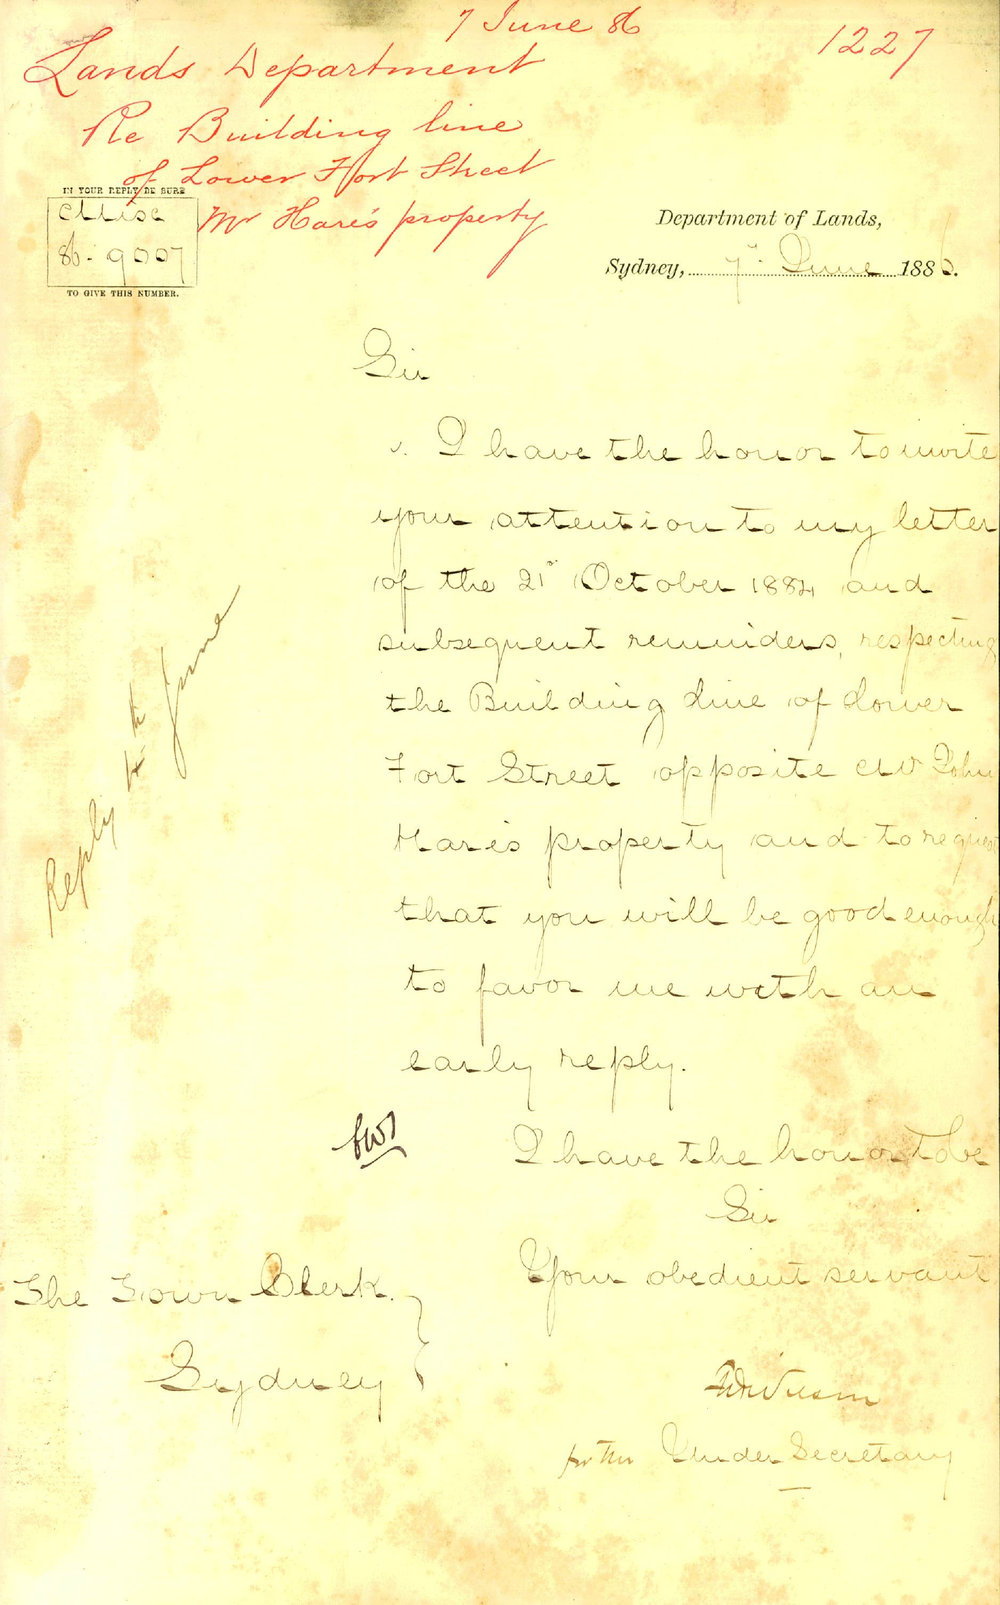 7 June 86
1227
Lands Department
Re Building line
of Lower Fort Street
Mr Hare's property
IN YOUR REPLY BE SURE
Misc
86-9007
TO GIVE THIS NUMBER.
Department of Lands,
Sydney, 7th June 1886.
Sir
I have the honor to invite
your attention to my letter
of the 21st October 1884 and
subsequent reminders, respecting
the Building line of Lower
Fort Street opposite Mr John
Hare's property and to request
that you will be good enough
to favor me with an
early reply.
Reply 4th June
I have the honor to be
Sir
Your obedient servant
The Town Clerk
Sydney
for the Under Secretary